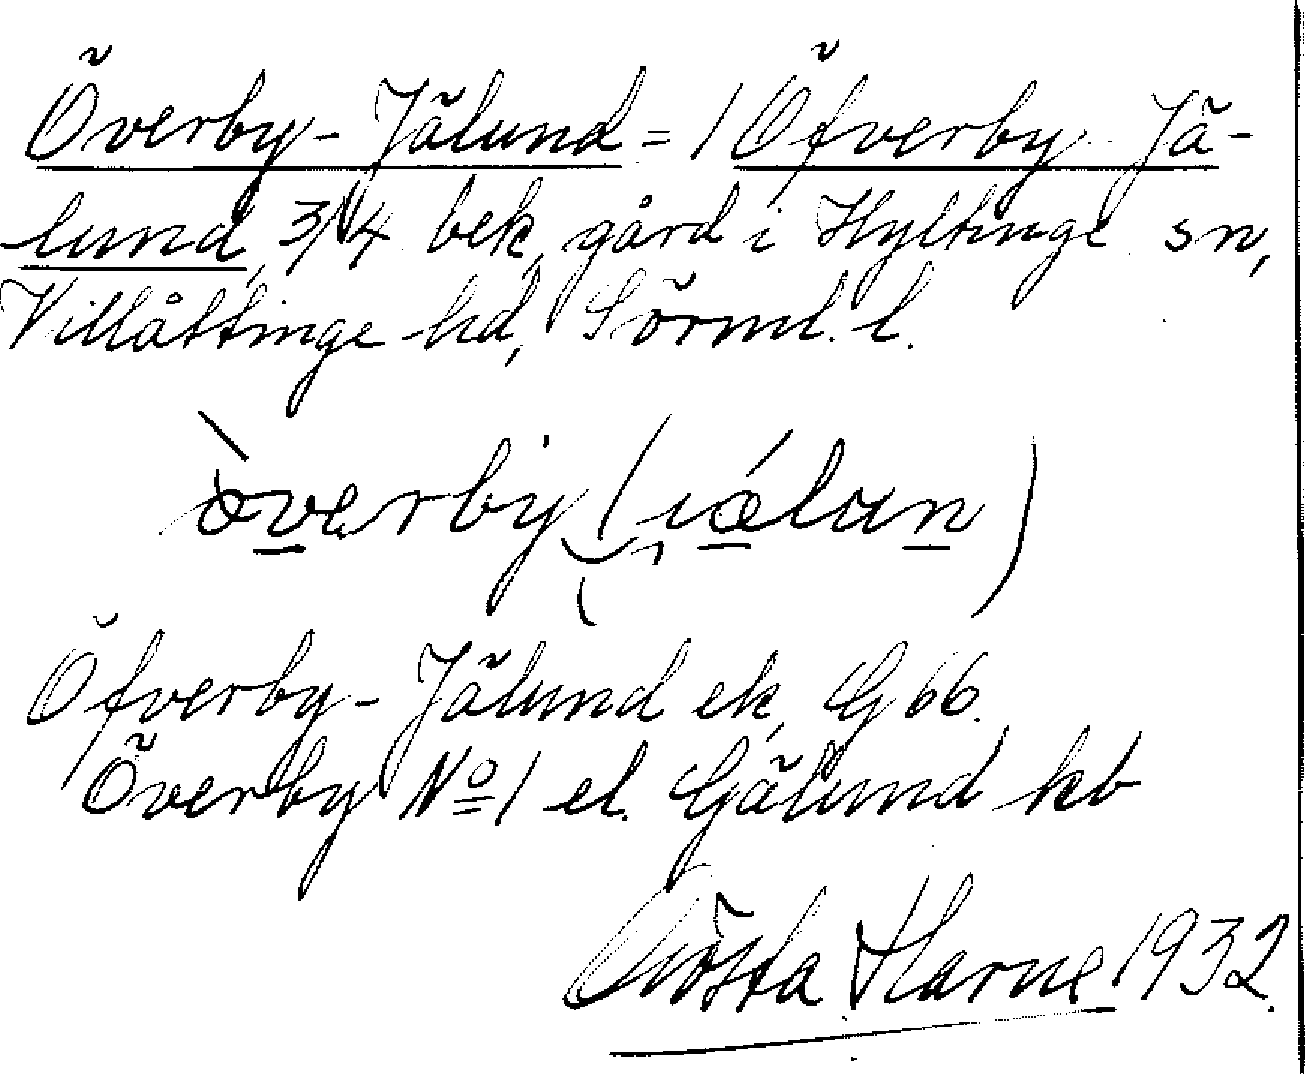 Överby-Jälund = 1 Öfverby-Jä-
lund, 3/4 bek, gård i Hyltinge sn,
Villåttinge hd, Sörml. l.
Öfverby-Jälund ek, G 66.
Överby No 1 el. Gälund kb
Gösta Harne 1932.